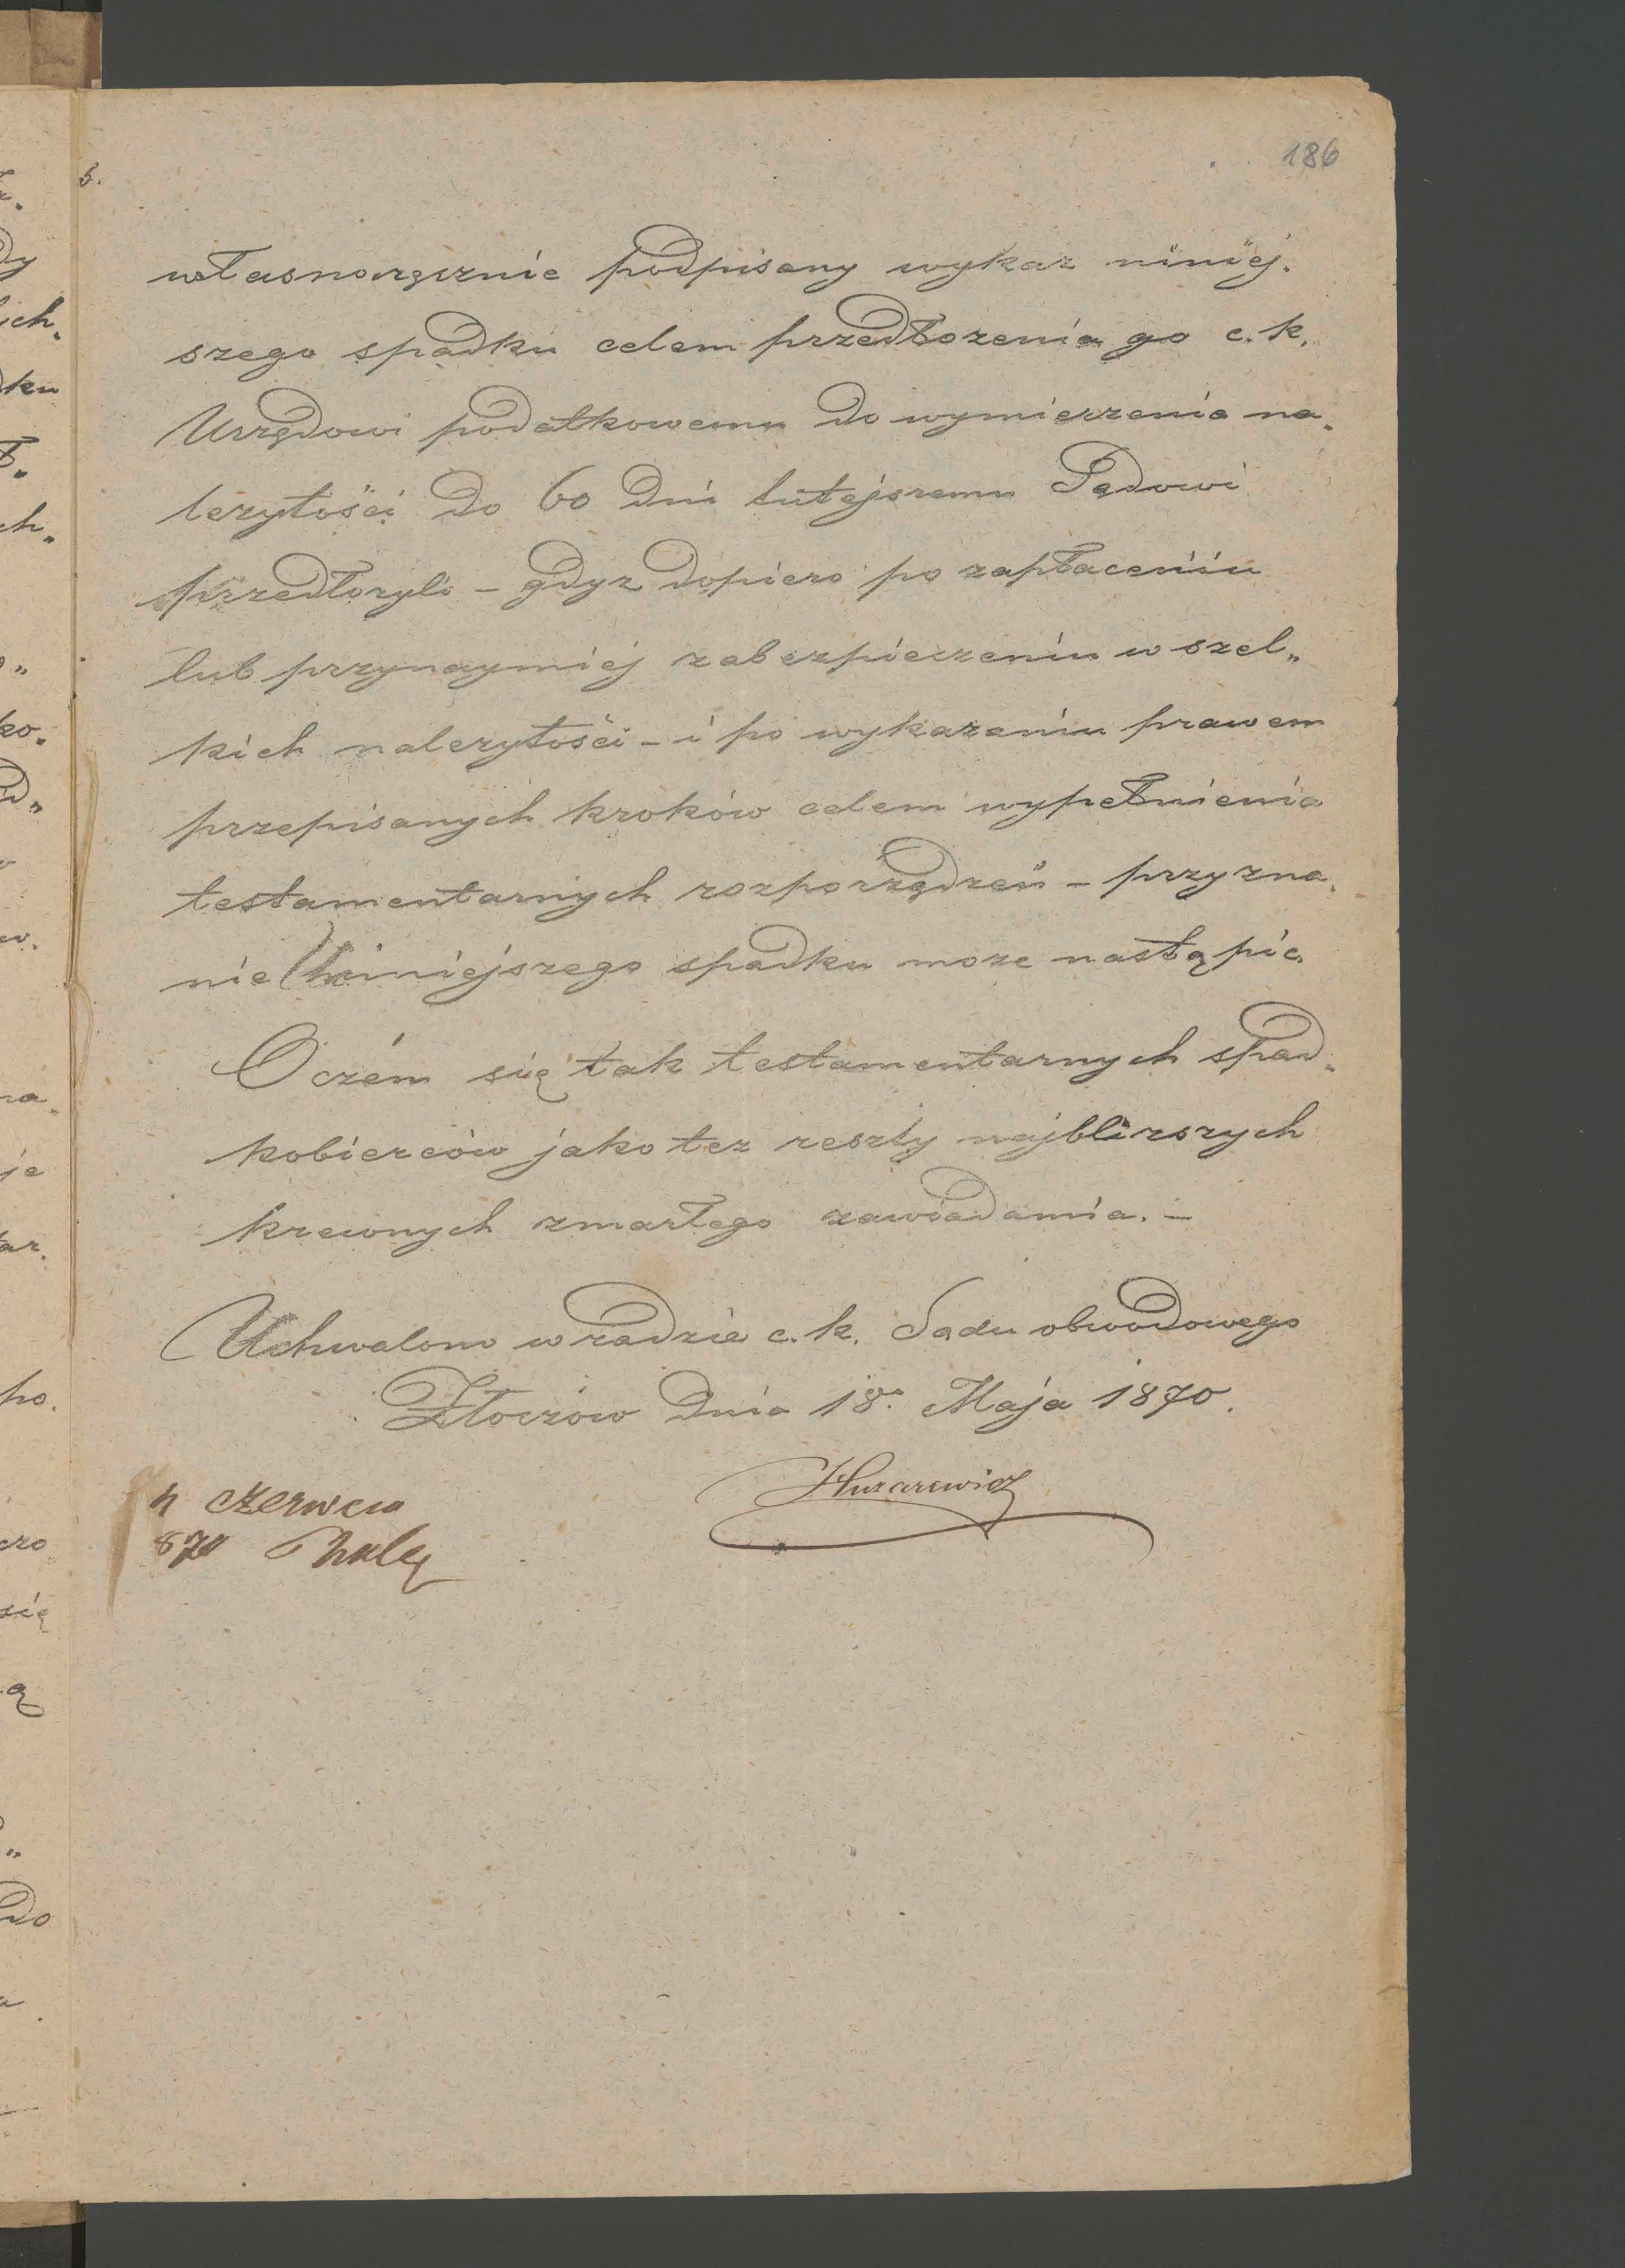 186
5.
własnoręcznie podpisany wykaz niniej.
szego spadku celem przedłozenia go c. k.
Urzędowi podatkowemu do wymierzenia na„
lezytości do 60 dni tutejszemu Sądowi
przedłozyli – gdyz dopiero po zapłaceniu
lub przynaymniej zabezpieczeniu wszel„
kich nalezytości – i po wykazaniu prawem
przepisanych kroków celem wypełnienia
testamentarnych rozporządzeń – przyzna„
nie niniejszego spadku moze nastąpic.
O czém się tak testamentarnych spad„
kobierców jako tez reszty najblizszych
krewnych zmarłego zawiadamia. –
Uchwalono w radzie c. k. Sądu obwodowego
Złoczów dnia 18go Maja 1870.
Huzarewicz
4 czerwca
870